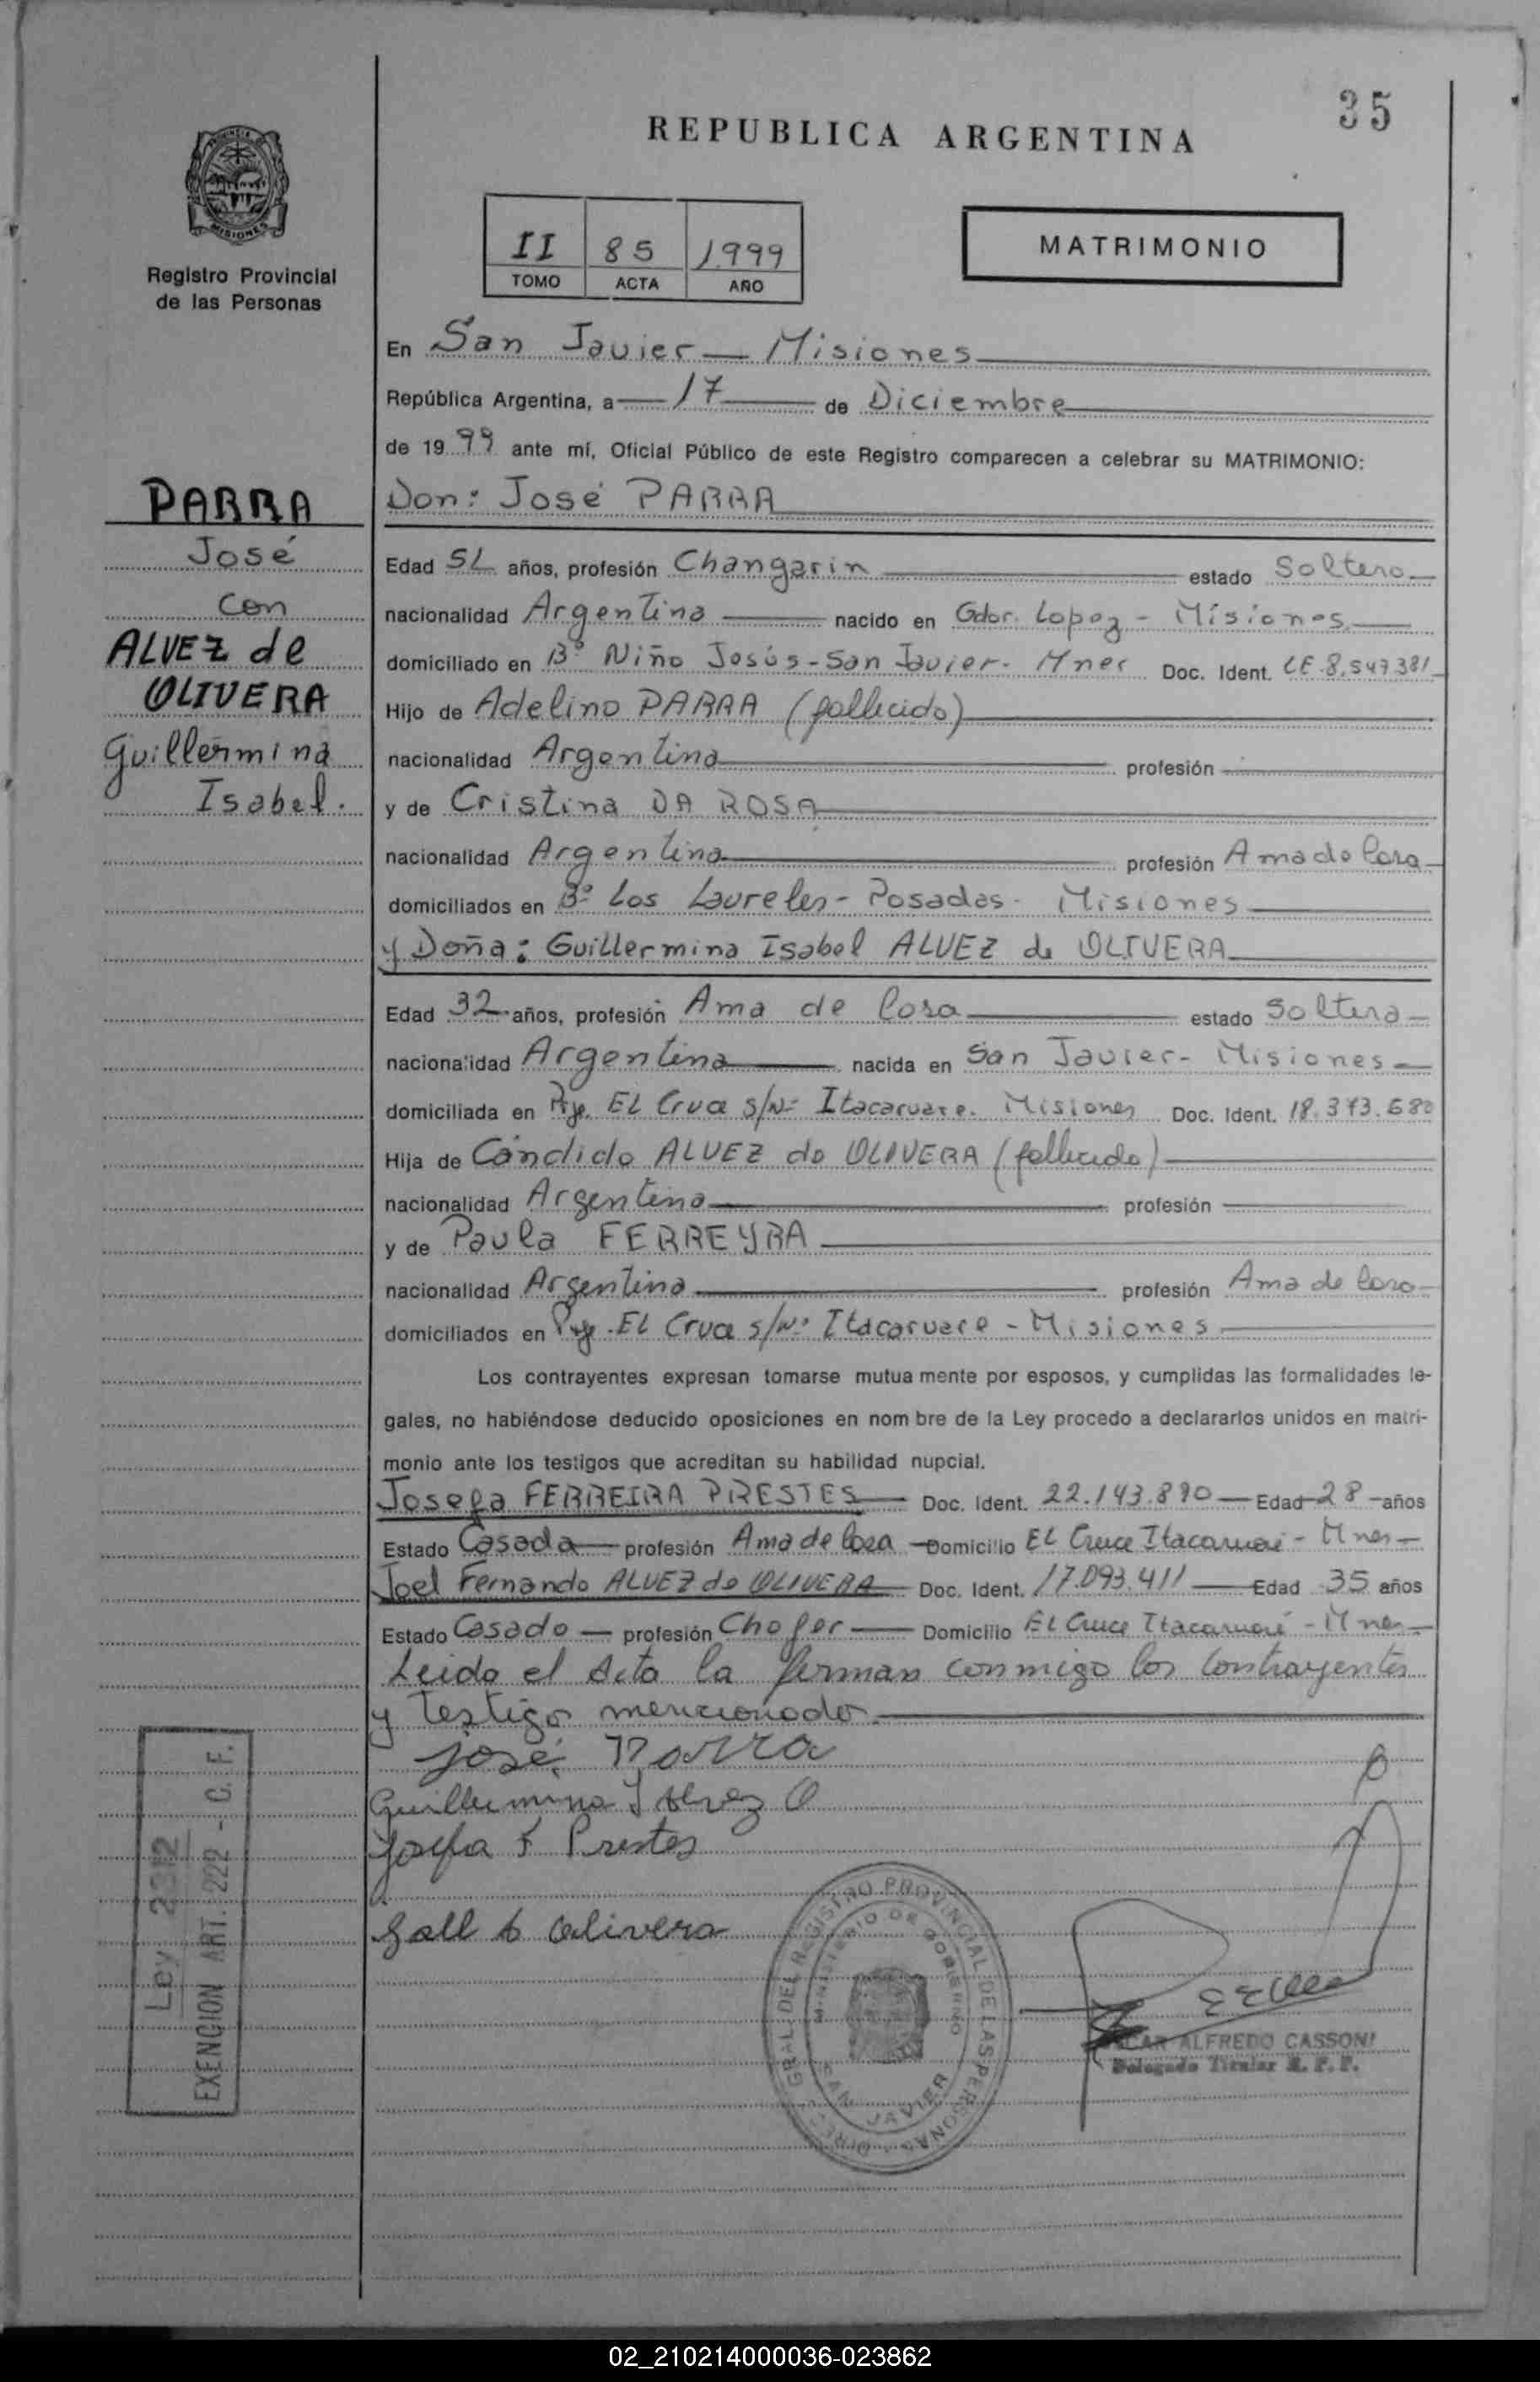 35
REPUBLICA ARGENTINA
PROVINCIA DE
MISIONES
Registro Provincial
de las Personas
II 85 1999
TOMO ACTA AÑO
MATRIMONIO
En San Javier — Misiones
República Argentina, a 17 de Diciembre
de 1999 ante mí, Oficial Público de este Registro comparecen a celebrar su MATRIMONIO:
PARRA
José
con
ALVEZ de
OLIVERA
Guillermina
Isabel.
Don: José PARRA
Edad años, profesión Changarin estado Soltero
nacionalidad Argentina nacido en Gdor. Lopez - Misiones
domiciliado en Bº Niño Jesús - San Javier - Mnes Doc. Ident. LE 8.547.381
Hijo de Adelino PARRA (fallecido)
nacionalidad Argentina profesión
y de Cristina DA ROSA
nacionalidad Argentina profesión Ama de Casa
domiciliados en Bº Los Laureles - Posadas - Misiones
y Doña: Guillermina Isabel ALVEZ de OLIVERA
Edad 32 años, profesión Ama de Casa estado Soltera
nacionalidad Argentina nacida en San Javier - Misiones
domiciliada en Pje. EL Cruce s/Nº Itacaruare. Misiones Doc. Ident. 18.373.680
Hija de Cándido ALVEZ de OLIVERA (fallecido)
nacionalidad Argentina profesión
y de Paula FERREYRA
nacionalidad Argentina profesión Ama de Casa
domiciliados en Pje. EL Cruce s/Nº Itacaruare - Misiones
Los contrayentes expresan tomarse mutua mente por esposos, y cumplidas las formalidades le-
gales, no habiéndose deducido oposiciones en nom bre de la Ley procedo a declararlos unidos en matri-
monio ante los testigos que acreditan su habilidad nupcial.
Josefa FERREIRA PRESTES Doc. Ident. 22.143.890 Edad 28 años
Estado Casada profesión Ama de Casa Domicilio EL Cruce Itacaruaré - Mnes
Joel Fernando ALVEZ de OLIVERA Doc. Ident. 17.093.411 Edad 35 años
Estado Casado profesión Chofer Domicilio EL Cruce Itacaruaré - Mnes
Leida el Acta la firman conmigo los Contrayentes
y testigos mencionados.
José Parra
Guillermina I Alvez O
Josefa F Prestes
Olivera
Ley 2312
EXENCION ART. 222 - C. F.
DIREC. GRAL. DEL REGISTRO PROVINCIAL DE LAS PERSONAS
MINISTERIO DE GOBIERNO
SAN JAVIER
ALFREDO CASSONI
Delegado Titular R. P. P.
02_210214000036-023862